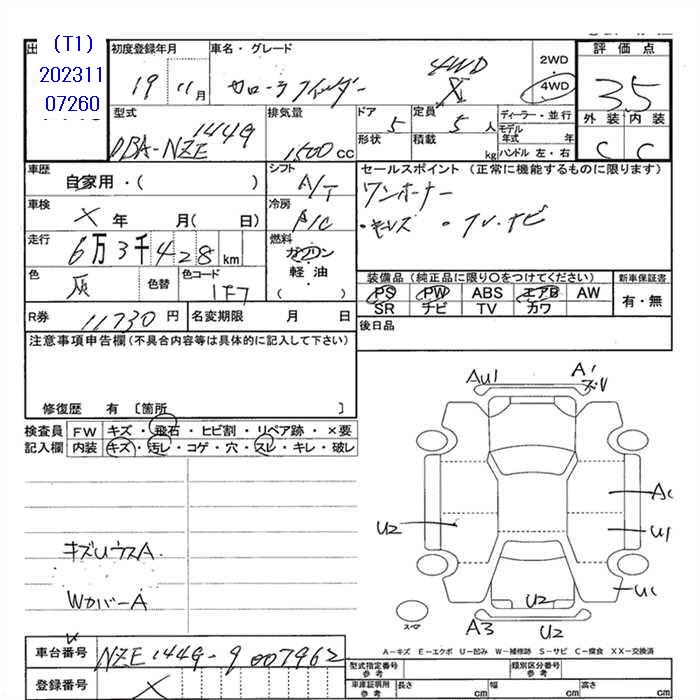 (T1)
202311
07260
出
初度登録年月
19 11月
車名・グレード
カローラフィールダー 4WD X
2WD
4WD
評価点
3.5
外装 内装
C C
型式
DBA-NZE144G
排気量
1500 CC
ドア 5
形状
定員 5 人
積載 kg
ディーラー・並行
モデル年式 年
ハンドル 左・右
車歴
自家用・( )
シフト
A/T
セールスポイント (正常に機能するものに限ります)
ワンオーナー
・キーレス ・TV.ナビ
車検
X 年 月( 日)
冷房
A/C
走行
6万3千428km
燃料
ガソリン
軽油
( )
色
灰
色替
色コード
1F7
装備品 (純正品に限り〇をつけてください)
PS PW ABS エアB AW
SR ナビ TV カワ
新車保証書
有・無
R券 11730 円
名変期限 月 日
後日品
注意事項申告欄 (不具合内容等は具体的に記入して下さい)
修復歴 有 [箇所 ]
検査員 FW キズ・飛石・ヒビ割・リペア跡・×要
記入欄 内装 キズ・汚レ・コゲ・穴・スレ・キレ・破レ
AU1
A1
U2
U1
U2
A3
U2
キズUウスA.
WカバーA
スペア
A-キズ E-エクボ U-凹み W-補修跡 S-サビ C-腐食 XX-交換済
車台番号 NZE144G-9007962
登録番号 X
型式指定番号
参考
類別区分番号
参考
車庫証明用
参考
長さ cm
幅 cm
高さ cm